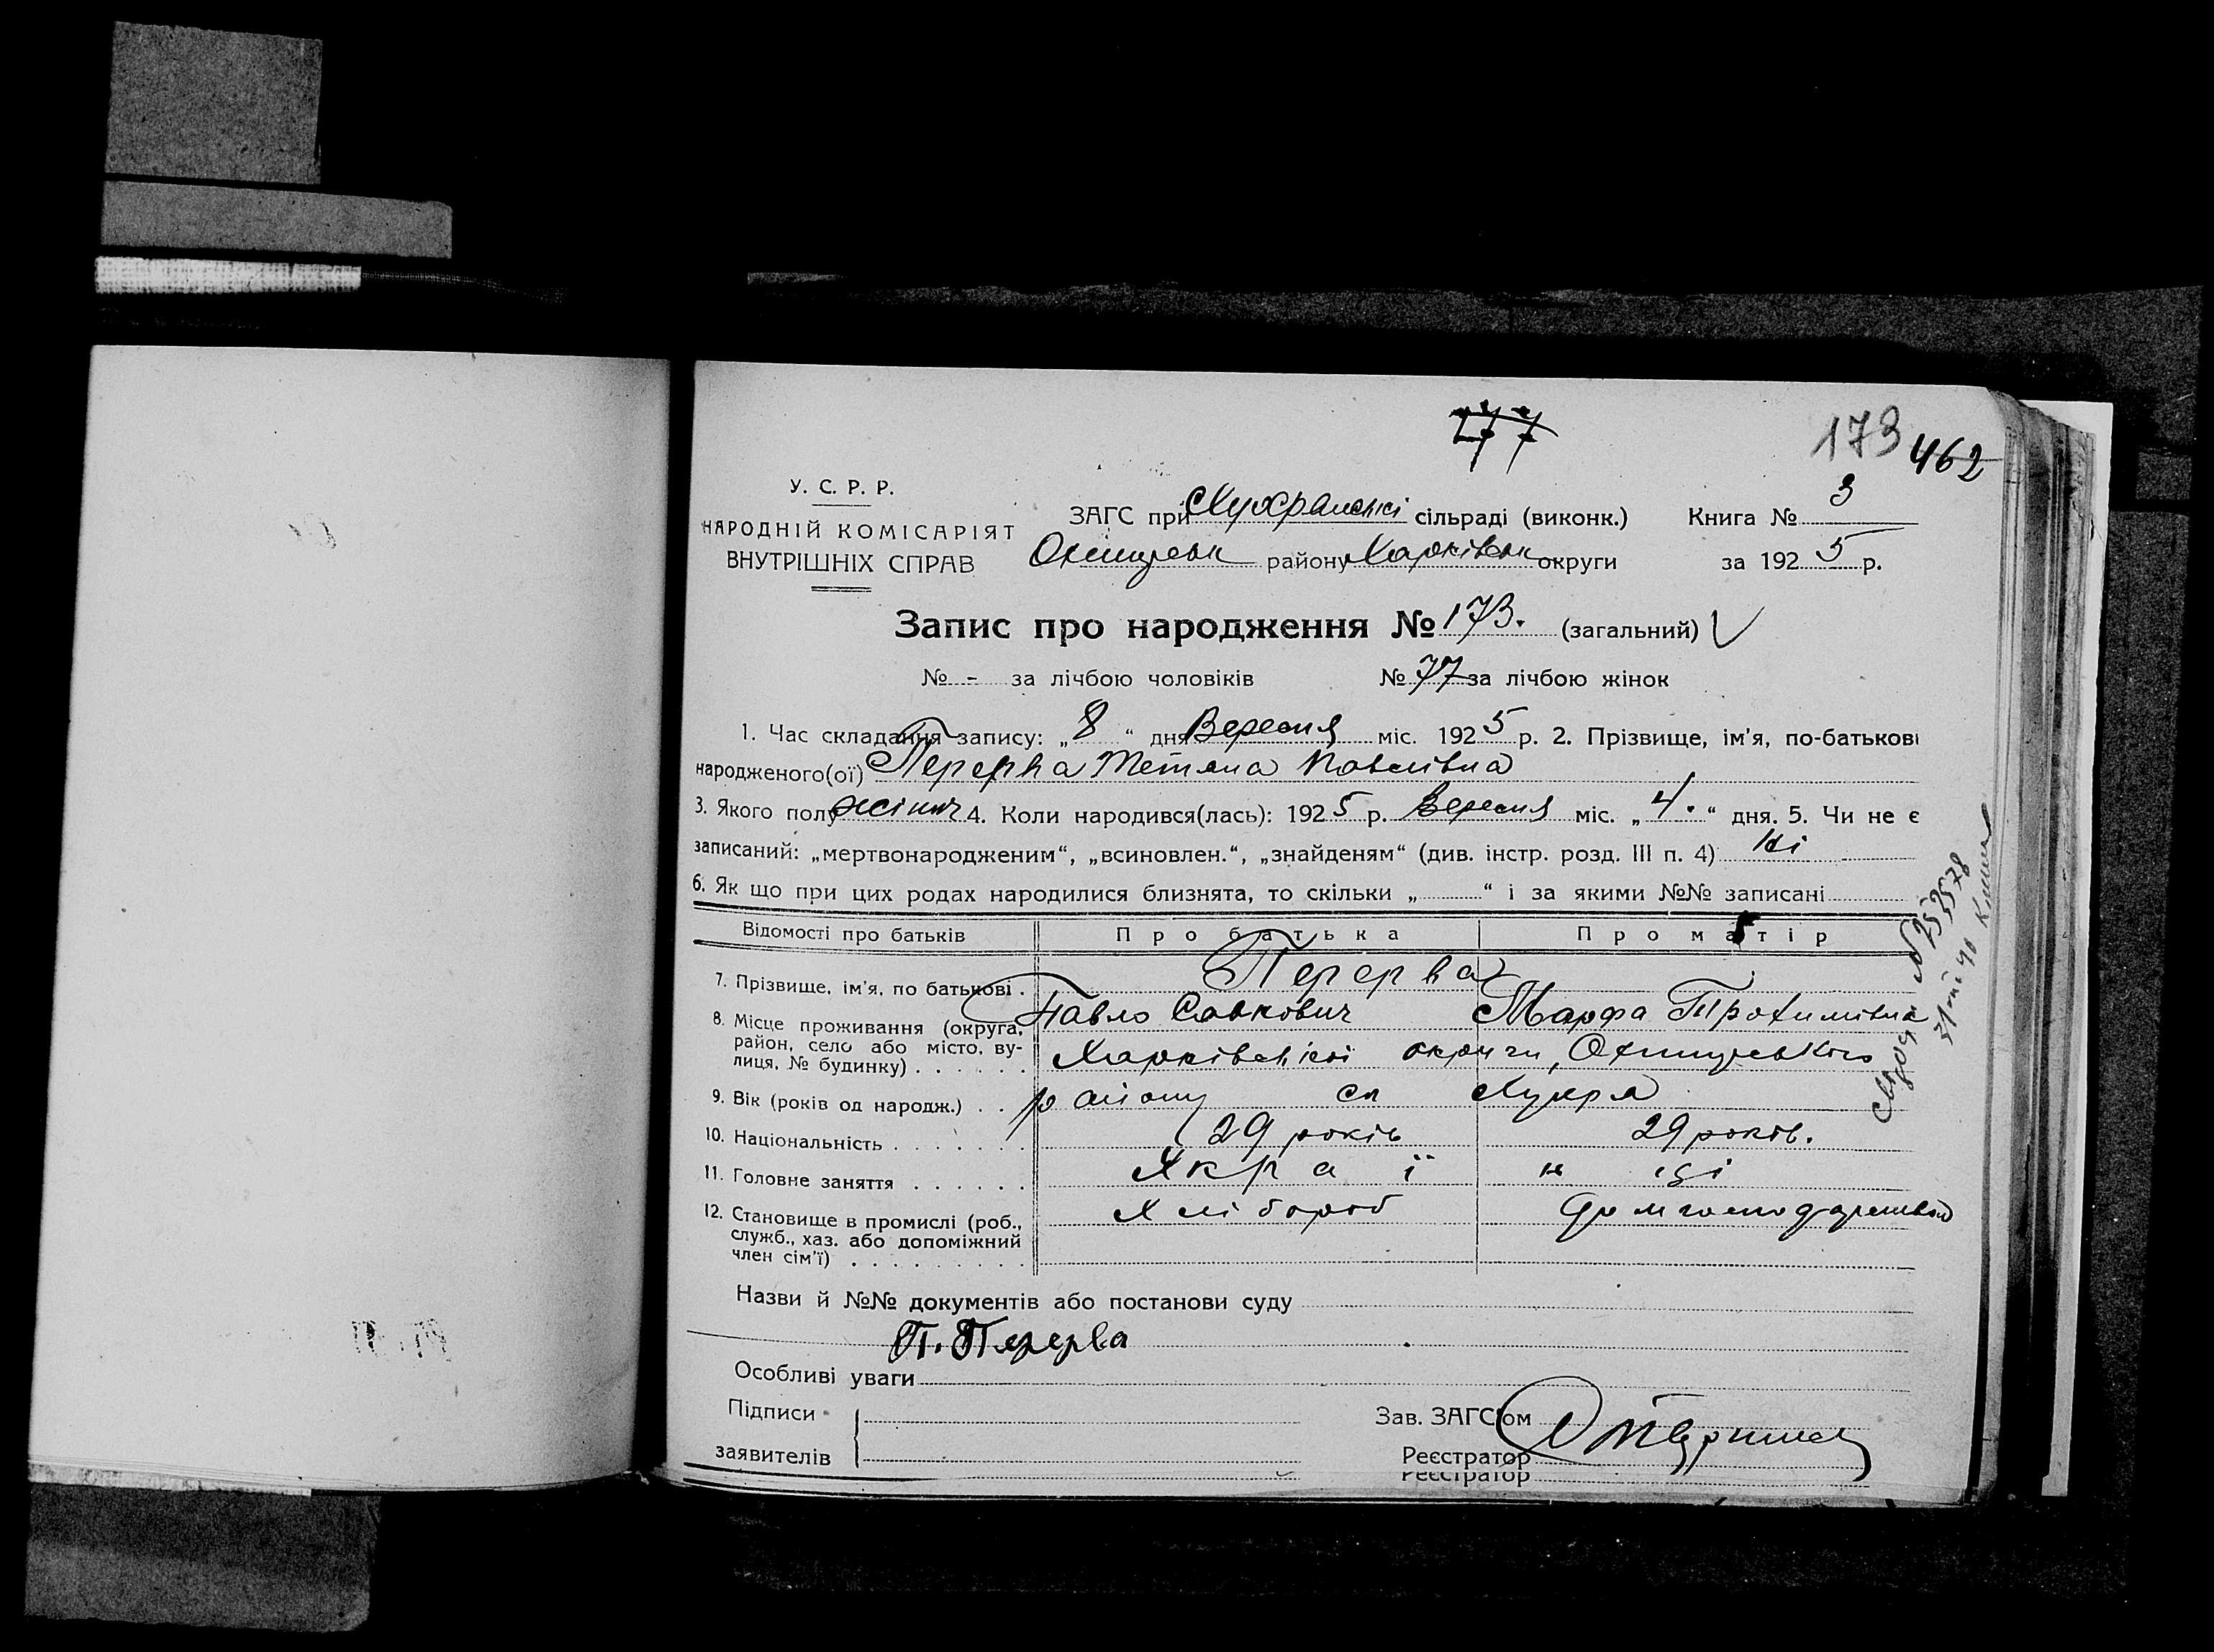 77
173 462
У. С. Р. Р.
НАРОДНІЙ КОМІСАРІЯТ
ВНУТРІШНІХ СПРАВ
ЗАГС при сільраді (виконк.) Книга № 3
району Харківськ округи за 192 5 р.
Запис про народження № 173. (загальний)
№ - за лічбою чоловіків № 77 за лічбою жінок
1. Час складання запису: „ 8 “ дня Вересня міс. 192 5 р. 2. Прізвище, ім’я, по-батькові
народженого(ої) Перерва Тетяна Павлівна
3. Якого полу жіноч 4. Коли народився(лась): 192 5 р. Вересня міс. „ 4. “ дня. 5. Чи не є
записаний: „мертвонародженим“, „всиновлен.“, „знайденям“ (див. інстр. розд. III п. 4) Ні
6. Як що при цих родах народилися близнята, то скільки „ “ і за якими №№ записані
Відомості про батьків Про батька Про матір
7. Прізвище, ім’я, по батькові . Перерва
Павло Савкович Марфа Трохимівна
8. Місце проживання (округа,
район, село або місто, ву-
лиця, № будинку) . . . . . . Харківської округи, Охтирського
9. Вік (років од народж.) . . району сл Хухря
10. Національність . . . . . . . 29 років 29 років.
11. Головне заняття . . . . . . Украї н ці
12. Становище в промислі (роб.,
служб., хаз. або допоміжний
член сім’ї) . . . . . . . . . Хлібороб
Назви й №№ документів або постанови суду
П. Перерва
Особливі уваги
Підписи
заявителів
Зав. ЗАГС’ом
Реєстратор
Реєстратор